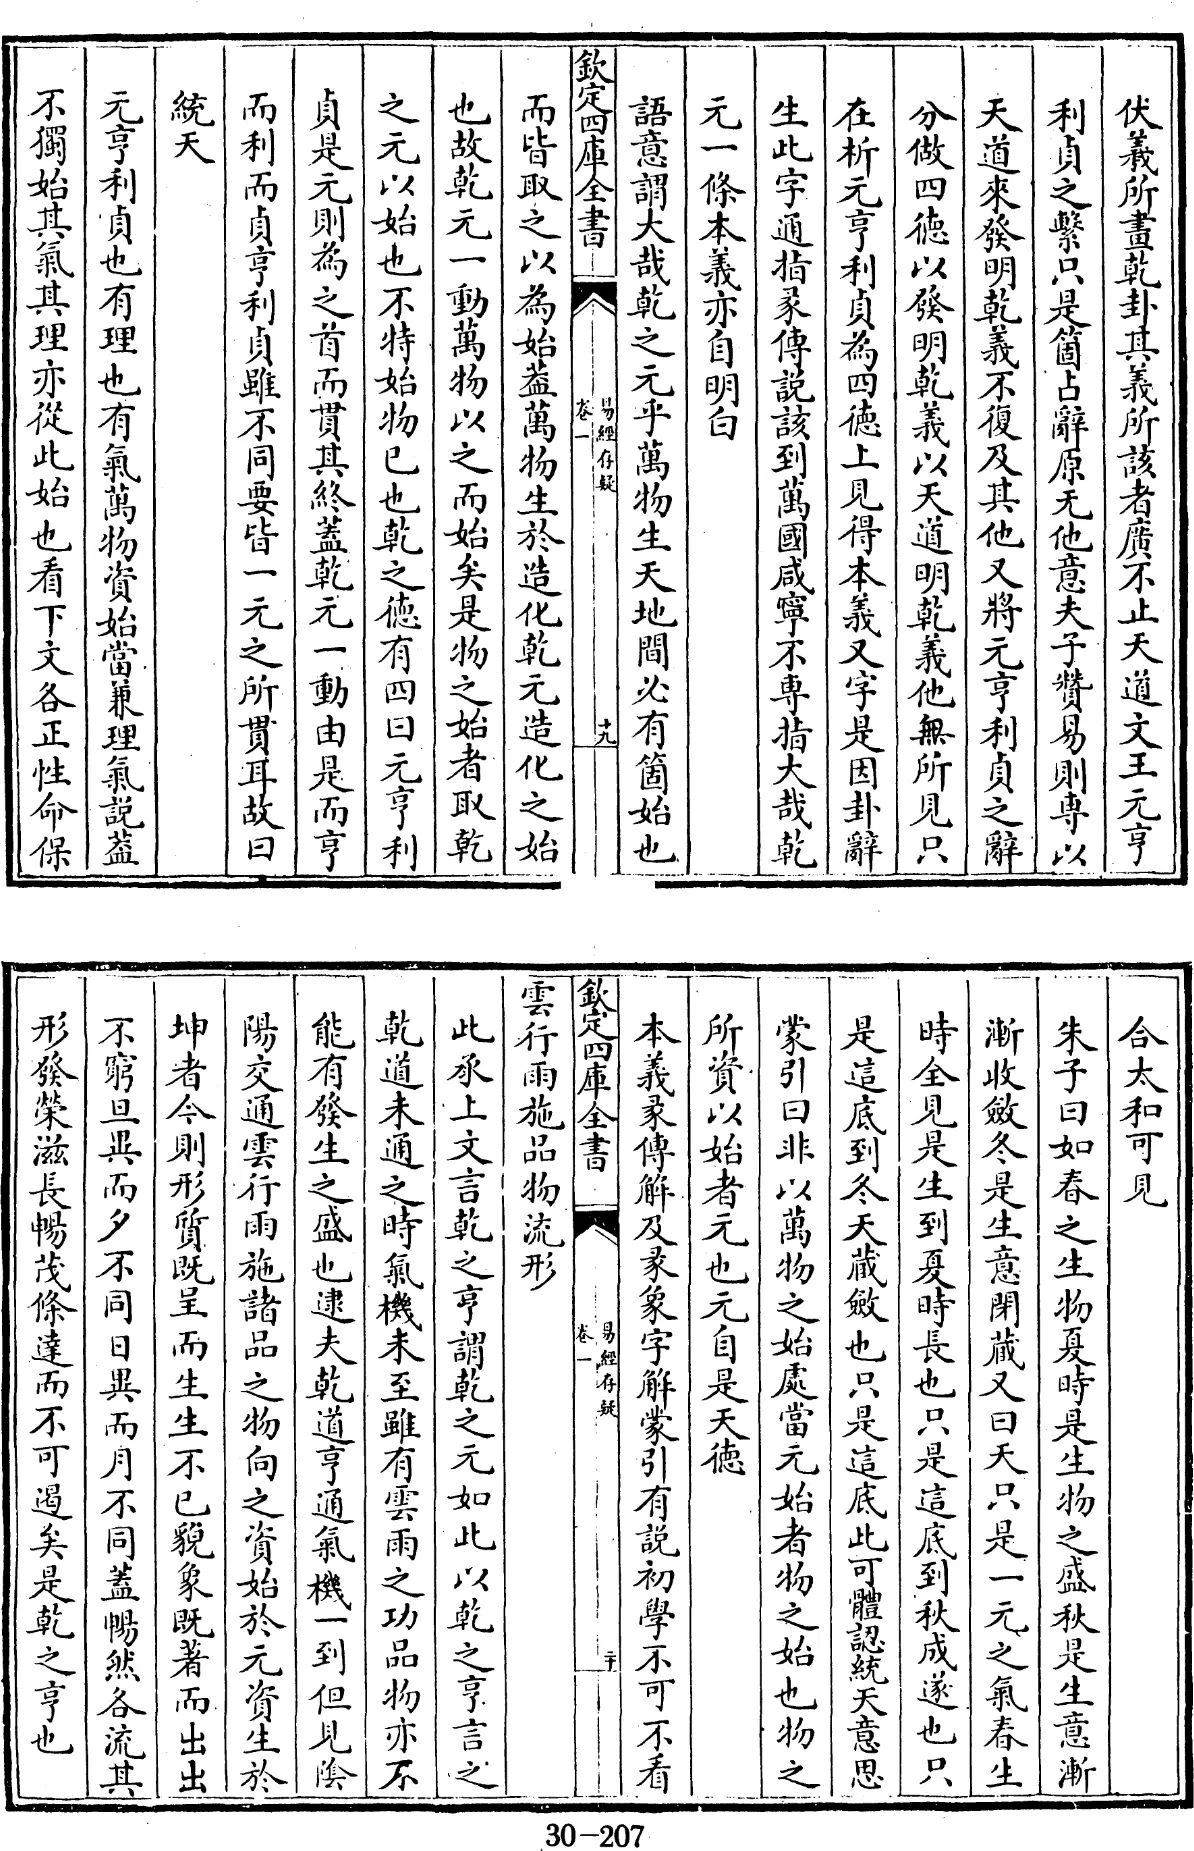 伏羲所畫乾卦其義所該者廣不止天道文王元亨
利貞之繫只是箇占辭原无他意夫子贊易則專以
天道來發明乾義不復及其他又將元亨利貞之辭
分做四德以發明乾義以天道明乾義他無所見只
在析元亨利貞為四德上見得本義又字是因卦辭
生此字通指彖傳説該到萬國咸寧不專指大哉乾
元一條本義亦自明白
語意謂大哉乾之元乎萬物生天地間必有箇始也
欽定四庫全書
易經存疑
卷一
十九
而皆取之以為始葢萬物生於造化乾元造化之始
也故乾元一動萬物以之而始矣是物之始者取乾
之元以始也不特始物已也乾之德有四曰元亨利
貞是元則為之首而貫其終葢乾元一動由是而亨
而利而貞亨利貞雖不同要皆一元之所貫耳故曰
統天
元亨利貞也有理也有氣萬物資始當兼理氣説葢
不獨始其氣其理亦從此始也看下文各正性命保
合太和可見
朱子曰如春之生物夏時是生物之盛秋是生意漸
漸收斂冬是生意閉藏又曰天只是一元之氣春生
時全見是生到夏時長也只是這底到秋成遂也只
是這底到冬天藏斂也只是這底此可體認統天意思
蒙引曰非以萬物之始處當元始者物之始也物之
所資以始者元也元自是天德
本義彖傳解及彖象字解蒙引有説初學不可不看
欽定四庫全書
易經存疑
卷一
二十
雲行雨施品物流形
此承上文言乾之亨謂乾之元如此以乾之亨言之
乾道未通之時氣機未至雖有雲雨之功品物亦不
能有發生之盛也逮夫乾道亨通氣機一到但見陰
陽交通雲行雨施諸品之物向之資始於元資生於
坤者今則形質既呈而生生不已貌象既著而出出
不窮旦異而夕不同日異而月不同蓋暢然各流其
形發榮滋長暢茂條達而不可遏矣是乾之亨也
30-207